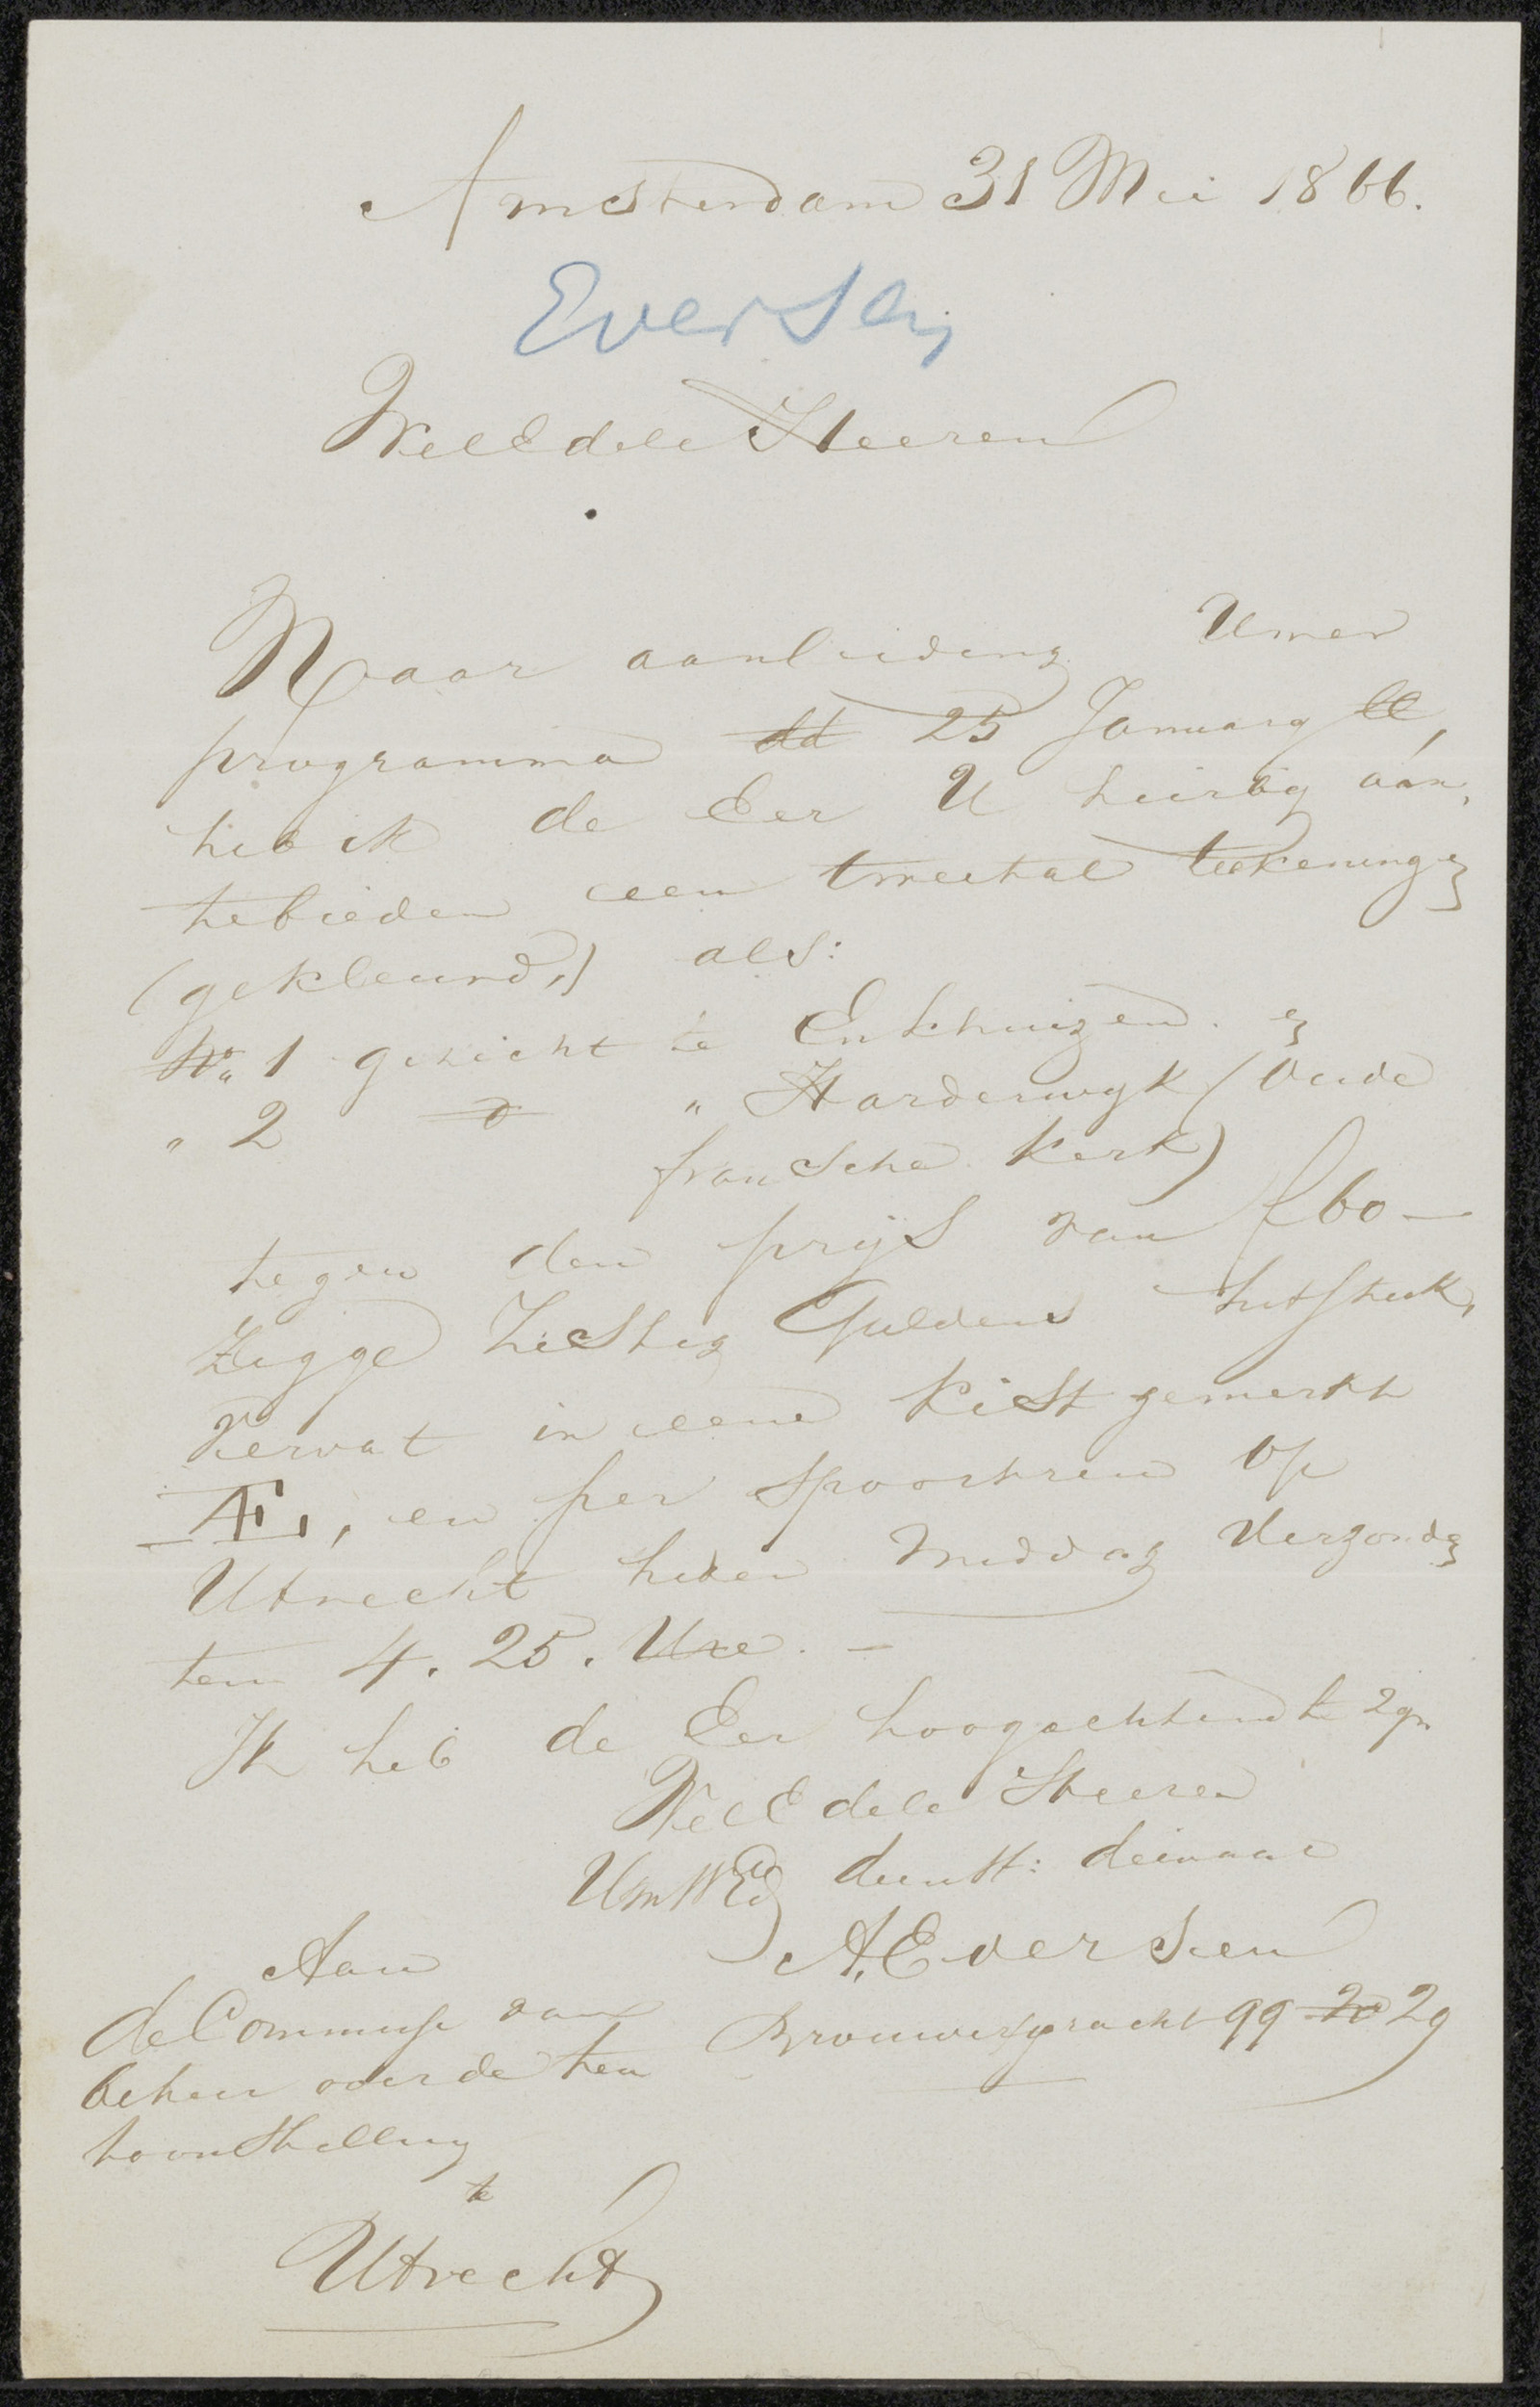 Amsterdam 31 Mei 1866.
Eversen
WelEdele Heeren
Naar aanleiding Uwer
programma dd 25 January ll,
heb ik de Eer U hierbij aan,
tebieden een tweetal teekeningen
(gekleurd,) als:
No 1 gezicht te Enkhuizen. en
" 2 do " Harderwyk (Oude
fransche kerk)
tegen den prijs van f 60 —
Zegge Zestig Guldens het stuk,
Vervat in eene kist gemerkt
AE, en per spoortrein op
Utrecht heden middag Verzonden
ten 4.25. Ure. —
Ik heb de Eer hoogachtend te zyn
WelEdele Heeren
UwWEd dienstt: dienaar
A. Eversen
Aan
de Commissie van
Brouwersgracht 99 29
beheer over de ten
toonstelling
te
Utrecht